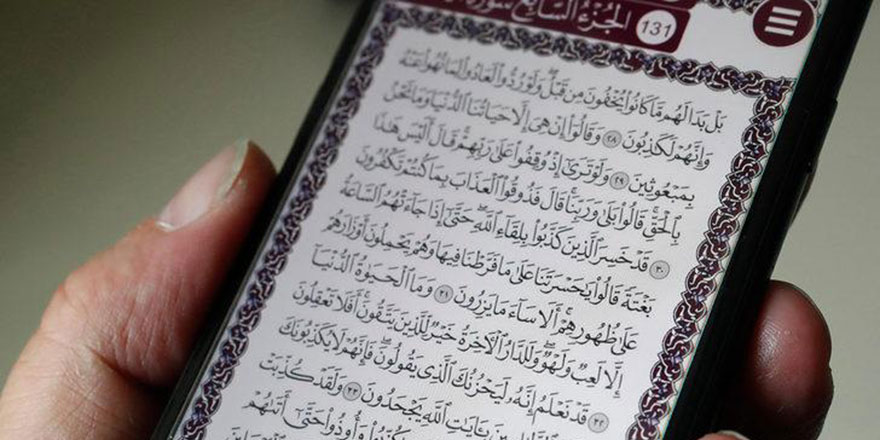 131 الجزء السابع
بَلْ بَدَا لَهُم مَّا كَانُوا۟ يُخْفُونَ مِن قَبْلُ ۖ وَلَوْ رُدُّوا۟ لَعَادُوا۟ لِمَا نُهُوا۟ عَنْهُ
وَإِنَّهُمْ لَكَـٰذِبُونَ ٢٨ وَقَالُوٓا۟ إِنْ هِىَ إِلَّا حَيَاتُنَا ٱلدُّنْيَا وَمَا نَحْنُ
بِمَبْعُوثِينَ ٢٩ وَلَوْ تَرَىٰٓ إِذْ وُقِفُوا۟ عَلَىٰ رَبِّهِمْ ۚ قَالَ أَلَيْسَ هَـٰذَا
بِٱلْحَقِّ ۚ قَالُوا۟ بَلَىٰ وَرَبِّنَا ۚ قَالَ فَذُوقُوا۟ ٱلْعَذَابَ بِمَا كُنتُمْ تَكْفُرُونَ
٣٠ قَدْ خَسِرَ ٱلَّذِينَ كَذَّبُوا۟ بِلِقَآءِ ٱللَّهِ ۖ حَتَّىٰٓ إِذَا جَآءَتْهُمُ ٱلسَّاعَةُ
بَغْتَةً قَالُوا۟ يَـٰحَسْرَتَنَا عَلَىٰ مَا فَرَّطْنَا فِيهَا وَهُمْ يَحْمِلُونَ أَوْزَارَهُمْ
عَلَىٰ ظُهُورِهِمْ ۚ أَلَا سَآءَ مَا يَزِرُونَ ٣١ وَمَا ٱلْحَيَوٰةُ ٱلدُّنْيَآ
إِلَّا لَعِبٌ وَلَهْوٌ ۖ وَلَلدَّارُ ٱلْـَٔاخِرَةُ خَيْرٌ لِّلَّذِينَ يَتَّقُونَ ۗ أَفَلَا تَعْقِلُونَ
٣٢ قَدْ نَعْلَمُ إِنَّهُۥ لَيَحْزُنُكَ ٱلَّذِى يَقُولُونَ ۖ فَإِنَّهُمْ لَا يُكَذِّبُونَكَ
بِـَٔايَـٰتِ ٱللَّهِ يَجْحَدُونَ ٣٣ وَلَقَدْ كُذِّبَتْ
وَأُوذُوا۟ حَتَّىٰٓ أَتَىٰهُمْ